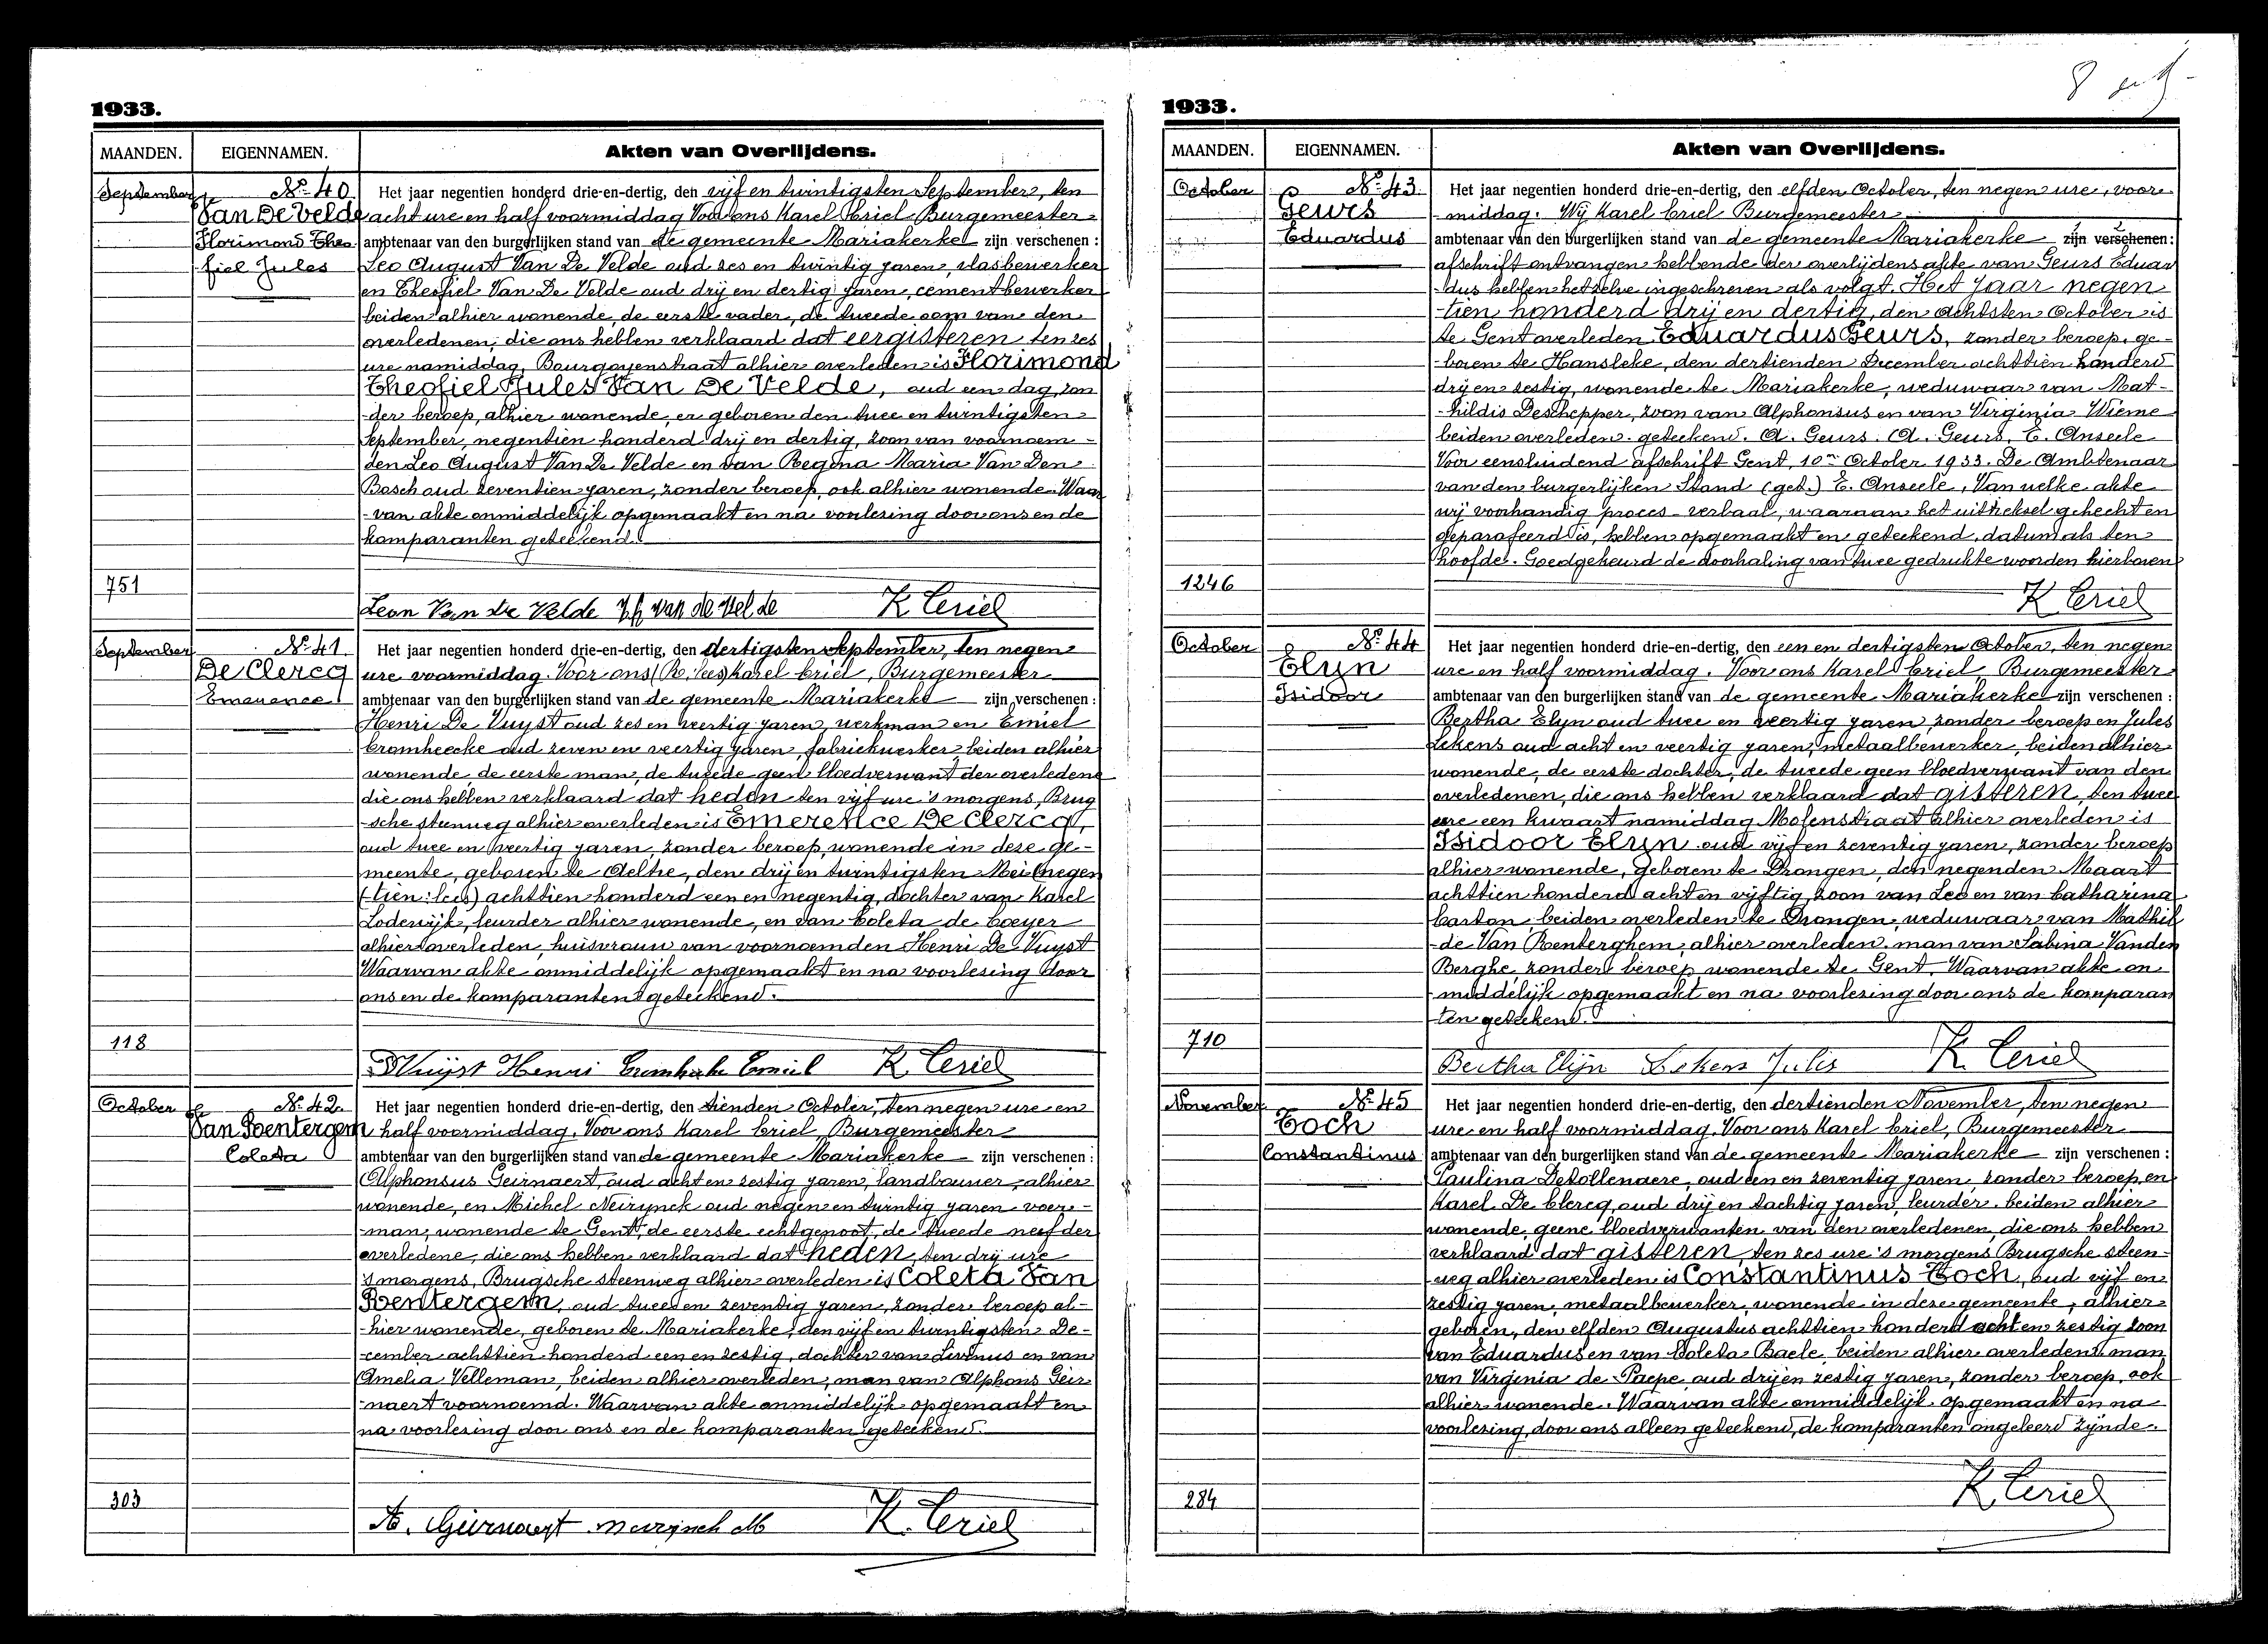 1933.
MAANDEN. EIGENNAMEN. Akten van Overlijdens.
September No 40 Het jaar negentien honderd drie-en-dertig, den vijf en twintigsten September, ten
Van De Velde acht ure en half voormiddag Voor ons Karel Criel Burgemeester
Florimond Theo ambtenaar van den burgerlijken stand van de gemeente Mariakerke zijn verschenen :
fiel Jules Leo August Van De Velde oud zes en twintig jaren, vlasbewerker
en Theofiel Van De Velde oud drij en dertig jaren, cementbewerker
beiden alhier wonende, de eerste vader, de tweede oom van den
overledenen, die ons hebben verklaard dat eergisteren ten zes
ure namiddag, Bourgoyenstraat alhier overleden is Florimond
Theofiel Jules Van De Velde, oud een dag, zon
-der beroep, alhier wonende, en geboren den twee en twintigsten
September, negentien honderd drij en dertig, zoon van voornoem-
den Leo August Van De Velde en van Regina Maria Van Den
Bosch oud zeventien jaren, zonder beroep, ook alhier wonende. Waar
-van akte onmiddelijk opgemaakt en na voorlezing door ons en de
komparanten geteekend.
751
Leon Van De Velde Th van de Velde K Ceriel
September No 41 Het jaar negentien honderd drie-en-dertig, den dertigsten September, ten negen
De Clercq ure voormiddag. Voor ons (R. lees) Karel Criel, Burgemeester
Emerence ambtenaar van den burgerlijken stand van de gemeente Mariakerke zijn verschenen :
Henri De Vuyst oud zes en veertig jaren, werkman en Emiel
Cromheecke oud zeven en veertig jaren, fabriekwerker, beiden alhier
wonende, de eerste man, de tweede geen bloedverwant der overledene
die ons hebben verklaard dat heden ten vijf ure 's morgens, Brug
-sche steenweg alhier overleden is Emerence De Clercq,
oud twee en veertig jaren, zonder beroep, wonende in deze ge-
meente, geboren te Aeltre, den drij en twintigsten Mei (negen
(-tien: lees) achttien honderd een en negentig, dochter van Karel
Lodewijk, leurder alhier wonende, en van Coleta de Coeyer
alhier overleden, huisvrouw van voornoemden Henri De Vuyst
Waarvan akte onmiddelijk opgemaakt en na voorlezing door
ons en de komparanten geteekend.
118
D Vuijst Henri Emiel K Ceriel
October No 42. Het jaar negentien honderd drie-en-dertig, den tienden October, ten negen ure en
Van Roentergem half voormiddag. Voor ons Karel Criel, Burgemeester
Coleta ambtenaar van den burgerlijken stand van de gemeente Mariakerke zijn verschenen :
Alphonsus Geirnaert, oud acht en zestig jaren, landbouwer, alhier
wonende, en Michel Neirynck oud negen en twintig jaren voer-
-man, wonende te Gent, de eerste echtgenoot, de tweede neef der
overledene, die ons hebben verklaard dat heden, ten drij ure
's morgens, Brugsche steenweg alhier overleden is Coleta Van
Roentergem, oud twee en zeventig jaren, zonder beroep al-
-hier wonende, geboren te Mariakerke, den vijf en twintigsten De-
-cember achttien honderd een en zestig, dochter van Livinus en van
Amelia Velleman, beiden alhier overleden, man van Alphons Geir
-naert voornoemd. Waarvan akte onmiddelijk opgemaakt en
na voorlezing door ons en de komparanten geteekend.
303
A. Geirnaert Neirynck M K. Ceriel
1933.
MAANDEN. EIGENNAMEN. Akten van Overlijdens.
October No 43. Het jaar negentien honderd drie-en-dertig, den elfden October, ten negen ure, voor
Geurs -middag. Wij Karel Criel Burgemeester
Eduardus ambtenaar van den burgerlijken stand van de gemeente Mariakerke zijn verschenen:
afschrift ontvangen hebbende der overlijdens akte van Geurs Eduar
-dus hebben hetzelve ingeschreven als volgt. Het jaar negen
-tien honderd drij en dertig, den achtsten October is
te Gent overleden Eduardus Geurs, zonder beroep, ge-
-boren te Hansbeke, den dertienden December achttien honderd
drij en zestig, wonende te Mariakerke, weduwaar van Mat-
-hildis Deschepper, zoon van Alphonsus en van Virginia Wieme
beiden overleden. geteekend. A. Geurs. A. Geurs, E. Anseele
Voor eensluidend afschrift Gent, 10en October 1933. De Ambtenaar
van den burgerlijken Stand (get.) E. Anseele, Van welke akte
wij voorhandig proces-verbaal, waaraan het uittreksel gehecht en
geparafeerd is, hebben opgemaakt en geteekend, datum als ten
hoofde. Goedgekeurd de doorhaling van twee gedrukte woorden hierboven
1246
K Ceriel
October No 44 Het jaar negentien honderd drie-en-dertig, den een en dertigsten October, ten negen
Elyn ure en half voormiddag. Voor ons Karel Criel, Burgemeester
Isidoor ambtenaar van den burgerlijken stand van de gemeente Mariakerke zijn verschenen :
Bertha Elyn oud twee en veertig jaren, zonder beroep en Jules
Lekens oud acht en veertig jaren, metaalbewerker, beiden alhier
wonende, de eerste dochter, de tweede geen bloedverwant van den
overledenen, die ons hebben verklaard dat gisteren, ten twee
ure een kwaart namiddag Molenstraat alhier overleden is
Isidoor Elyn oud vijf en zeventig jaren, zonder beroep
alhier wonende, geboren te Drongen, den negenden Maart
achttien honderd acht en vijftig, zoon van Leo en van Catharina
Caston, beiden overleden te Drongen, weduwaar van Mathil
-de Van Roenterghem, alhier overleden. man van Sabina Vanden
Berghe, zonder beroep wonende te Gent. Waarvan akte on-
middelijk opgemaakt en na voorlezing door ons de komparan
-ten geteekend.
710
Bertha Elijn Lekens Julis K Ceriel
November No 45 Het jaar negentien honderd drie-en-dertig, den dertienden November, ten negen
Toch ure en half voormiddag. Voor ons Karel Criel, Burgemeester
Constantinus ambtenaar van den burgerlijken stand van de gemeente Mariakerke zijn verschenen :
Paulina Detollenaere, oud een en zeventig jaren, zonder beroep, en
Karel De Clercq, oud drij en tachtig jaren, leurder. beiden alhier
wonende, geene bloedverwanten van den overledenen, die ons hebben
verklaard dat gisteren ten zes ure 's morgens Brugsche steen-
-weg alhier overleden is Constantinus Toch, oud vijf en
zestig jaren, metaalbewerker, wonende in deze gemeente, alhier
geboren, den elfden Augustus achttien honderd acht en zestig zoon
van Eduardus en van Coleta Baele, beiden alhier overleden. man
van Virginia de Paepe oud drij en zestig jaren, zonder beroep, ook
alhier wonende. Waarvan akte onmiddelijk opgemaakt en na
voorlezing, door ons alleen geteekend, de komparanten ongeleerd zijnde.
284
K Ceriel